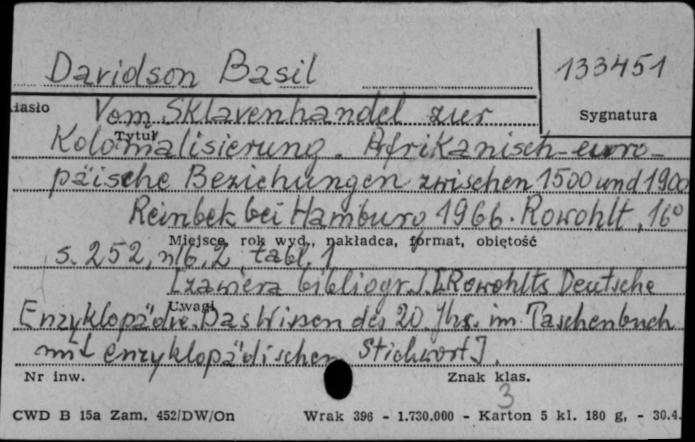 Davidson Basil
133451
Hasło
Vom Sklavenhandel zur
Sygnatura
Tytuł
Kolonialisierung. Afrikanisch-euro-
päische Beziehungen zwischen 1500 und 1900
Reinbek bei Hamburg 1966. Rowohlt, 16°
Miejsce, rok wyd., nakładca, format, objętość
s. 252, nlb. 2 tabl. 1
[zawiera bibliogr.] [Rowohlts Deutsche
Uwagi
Enzyklopädie. Das Wissen des 20 Jhs. im Taschenbuch
mit enzyklopädischem Stichwort].
Nr inw.
Znak klas.
3
CWD B 15a Zam. 452/DW/On
Wrak 396 - 1.730.000 - Karton 5 kl. 180 g, - 30.4.